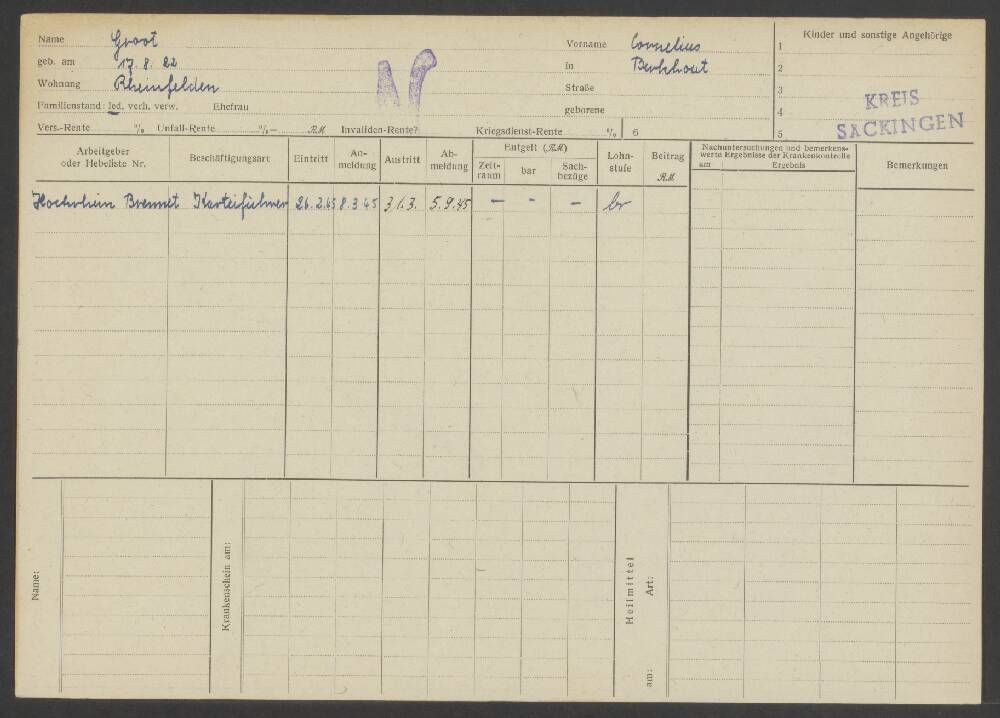 Name Groot Vorname Cornelius
geb. am 17.8.22 in Berkhout
Wohnung Rheinfelden Straße
Familienstand: led. verh. verw. Ehefrau geborene
Vers.-Rente % Unfall-Rente %— RM Invaliden-Rente? Kriegsdienst-Rente % 6
Kinder und sonstige Angehörige
1
2
3
4
5
KREIS
SÄCKINGEN
Arbeitgeber oder Hebeliste Nr.
Beschäftigungsart
Eintritt
An-
meldung
Austritt
Ab-
meldung
Entgelt (RM)
Zeit-
raum
bar
Sach-
bezüge
Lohn-
stufe
Beitrag
RM
Nachuntersuchungen und bemerkens-
werte Ergebnisse der Krankenkontrolle
am Ergebnis
Bemerkungen
Hochrhein Brennet Karteiführer 26.2.45 8.3.45 31.3. 5.9.45 — - —
Name:
Krankenschein am:
Heilmittel
Art:
am: